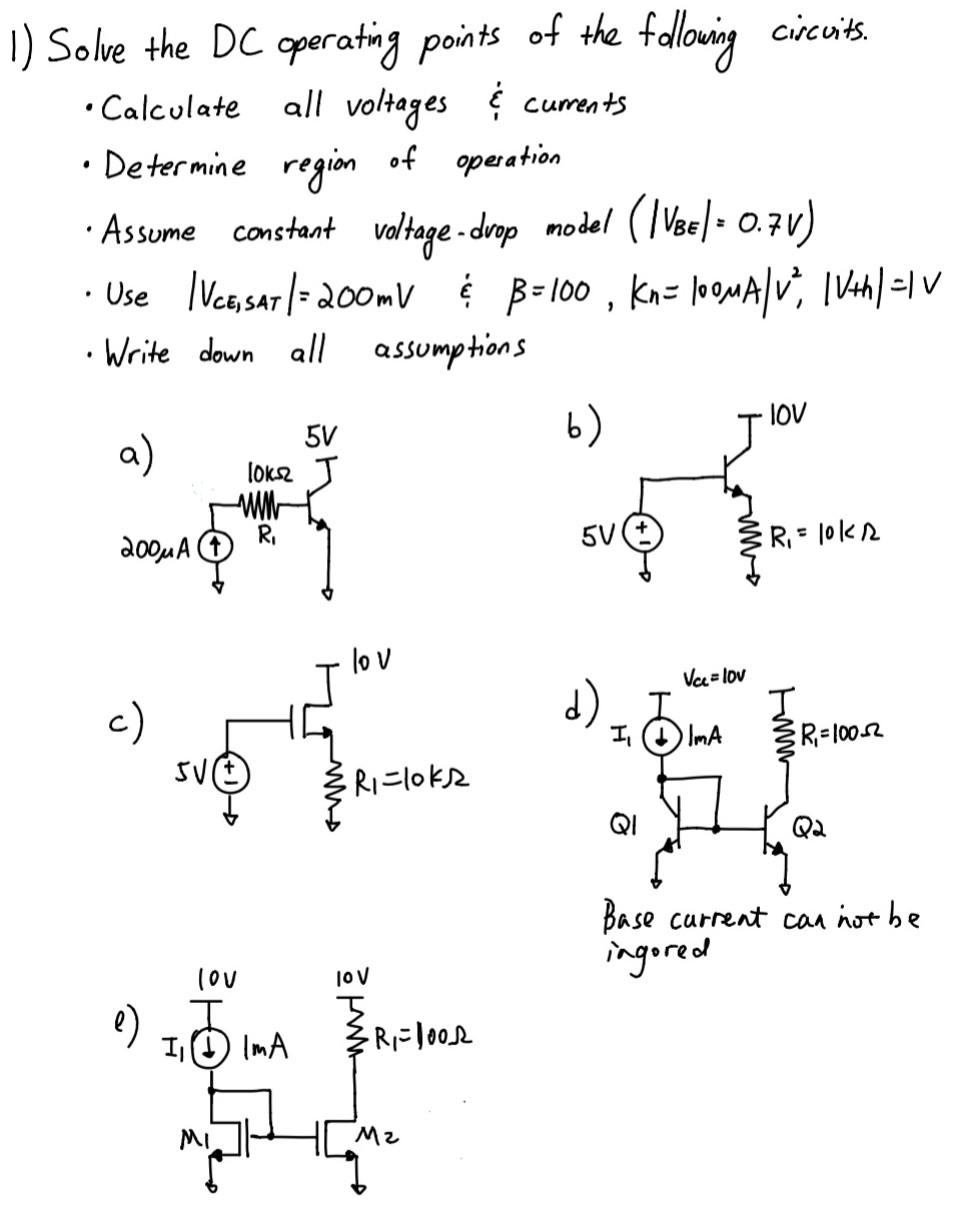 1) Solve the DC operating points of the following circuits.
• Calculate all voltages & currents
• Determine region of operation
• Assume constant voltage-drop model (|VBE| = 0.7V)
• Use |VCE,SAT| = 200mV & β=100, Kn = 100μA/V², |Vth|=1V
• Write down all assumptions
a)
5V
10kΩ
R₁
200μA
b)
10V
5V
R₁ = 10kΩ
c)
10V
5V
R₁=10kΩ
d)
Vcc=10V
I₁
1mA
R₁=100Ω
Q1
Q2
Base current can not be
ingored
e)
10V
10V
I₁
1mA
R₁=100Ω
M1
M2